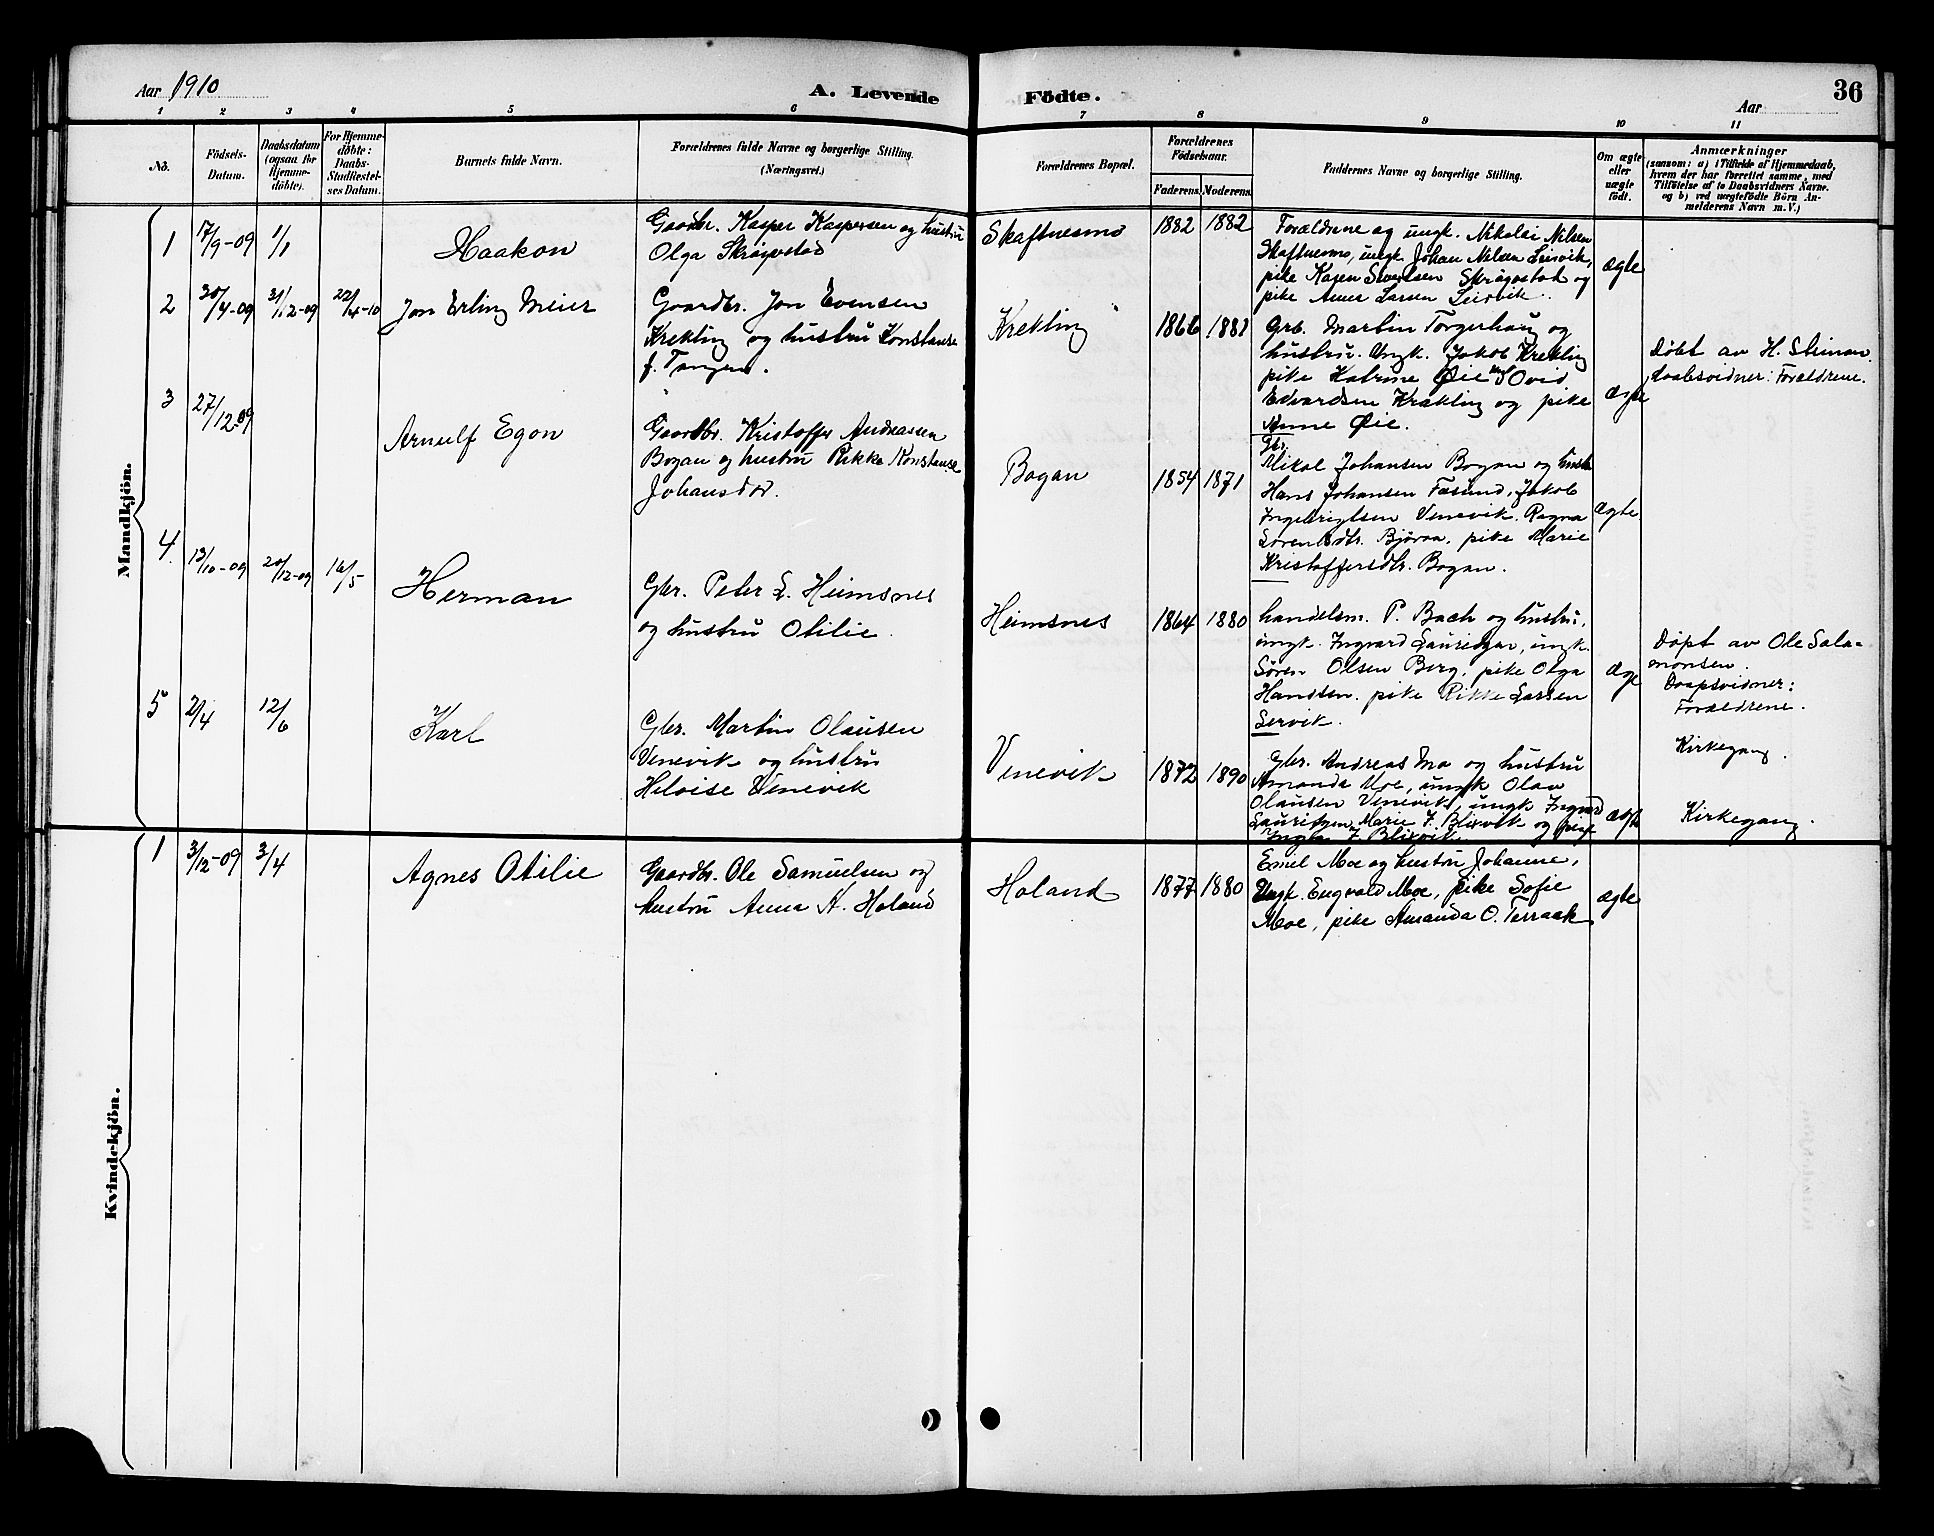 Aar 1910
A. Levende
Födte.
Aar
36
1 2 3 4 5 6 7 8 9 10 11
No.
Födsels-
Datum.
Daabsdatum
(ogsaa for
Hjemme-
døbte).
For Hjemme-
døbte:
Daabs-
Stadfæstel-
ses Datum.
Barnets fulde Navn.
Forældrenes fulde Navne og borgerlige Stilling.
(Næringsvei.)
Forældrenes Bopæl.
Forældrenes
Födselsaar.
Faderens. Moderens.
Faddernes Navne og borgerlige Stilling.
Om ægte
eller
uægte
født.
Anmærkninger
(saasom: a) i Tilfælde af Hjemmedaab,
hvem der har forrettet samme, med
Tilföielse af to Daabsvidners Navne.
og b) ved uægtefödte Börn An-
melderens Navn m. V.)
Mandkjön.
1 17/9-09 1/1
Haakon
Gaardbr. Kasper Kaspersen og hustru
Olga Skrøvstad
Skaftnesmo 1882 1882
Forældrene og ungk. Nikolai Nilsen
Skaftnesmo, ungk. Johan Nilsen Leirvik,
pike Karen Sivertsen Skrøvstad og
pike Anna Larsen Leirvik.
ægte
2 30/4-09 31/12-09 22/4-10
Jon Erling Meier
Gaardbr. Jon Evensen
Krekling og hustru Konstanse
f. Tangen.
Krekling 1866 1881
Grb. Martin Torgerhaug og
hustru. Ungk. Jakob Krekling
pike Katrine Øie Ovid
Edvardsen Krækling og pike
Anne Øie.
ægte
Døbt av H. Steinan.
Daabsvidner: Forældrene.
3 27/12-09
Arnulf Egon
Gaardbr. Kristoffer Andreassen
Bogan og hustru Rikke Konstanse
Johansdor.
Bogan 1854 1871
Gbr.
Mikal Johansen Bogan og hustru
Hans Johansen Fasund, Jakob
Ingebrigtsen Venevik. Ragna
Sørensdtr. Bjøraa, pike Marie
Kristoffersdtr. Bogan.
ægte.
4. 13/10-09 20/12-09 16/5
Herman
Gbr. Peter L. Heimsnes
og hustru Otilie.
Heimsnes 1864 1880
handelsm. P. Bach og hustru,
ungk. Ingvard Lauritzen, ungk.
Søren Olsen Berg, pike Olga
Handsen. pike Rikke Larsen
Lervik.
ægte
Døpt av Ole Sala-
monsen.
Daapsvidner:
Forældrene.
Kirkegang.
5 2/4 12/6
Karl
Gbr. Martin Olausen
Venevik og hustru
Heloise Venevik
Venevik 1872 1890
Gbr. Andreas Mo og hustru
Amanda Moe, ungk Olav
Olausen Venevik, ungk Ingvard
Lauritzen, Marie J. Blikvik og pike
J. Blikvik
ægte
Kirkegang.
Kvindekjön.
1 3/12-09 3/4
Agnes Otilie
Gaardbr. Ole Samuelsen og
hustru Anna K. Holand
Holand 1877 1880
Emil Moe og hustru Johanne,
Ungk. Engvald Moe, pike Sofie
Moe, pike Amanda O. Terraak
ægte